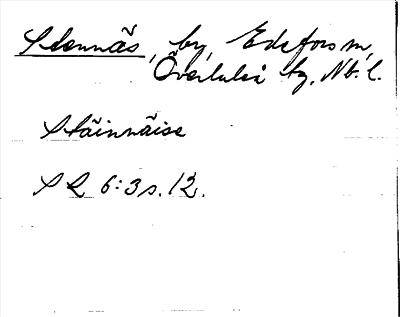 Stennäs, by, Edefors sn,
Överluleå tg, Nb. l.
Stäinnäise
S L 6:3 s. 12.